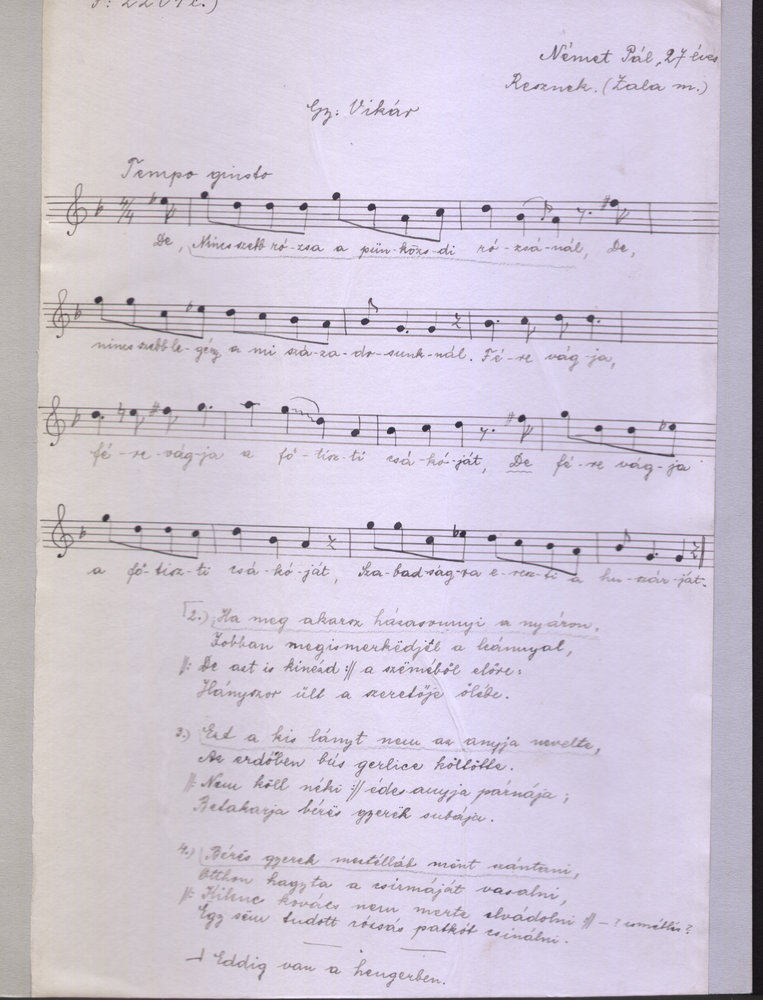 Német Pál, 27 éves
Resznek. (Zala m.)
Gy: Vikár
Tempo giusto
4/4
De, Nincs szebb ró-zsa a pün-közs-di ró-zsá-nál, De,
nincs szebb le-gény a mi szá-za-do-sunk-nál. Fé-re vág-ja,
fé-re-vág-ja a fő-tisz-ti csá-kó-ját, De fé-re vág-ja
a fő-tisz-ti csá-kó-ját, Sza-bad-ság-ra e-resz-ti a hu-szár-ját.
2.) Ha meg akarsz házasonunyi a nyáron,
Jobban megismerkëdjél a leánnyal,
||: De azt is kinézd :|| a szëmeből előre:
Hányszor ült a szeretője ölébe.
3.) Ezt a kis lányt nem az anyja nevelte,
Az erdőben bús gerlice költötte.
||: Nem köll néki :|| édes anyja párnája;
Betakarja bérës gyerëk subája.
4.) Bérës gyerek mentek mönt szántani,
Otthon hagyta a csizmáját vasalni,
||: Kilenc kovács nem merte elvádolni :|| – ? ismétlés?
Egy sëm tudott rózsás patkót csinálni.
Eddig van a hengerben.